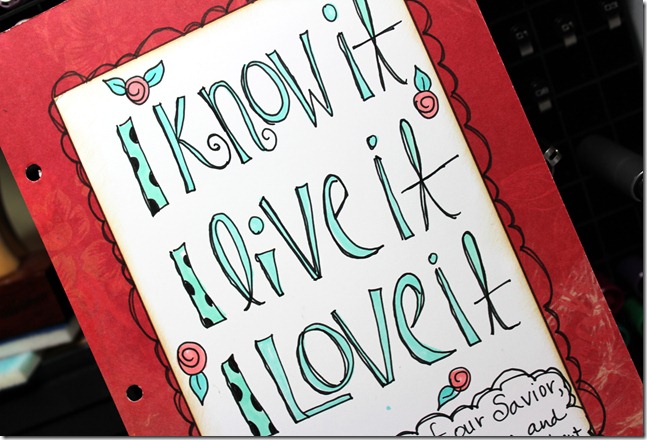 I know it
I live it
I Love it
our Savior,
and